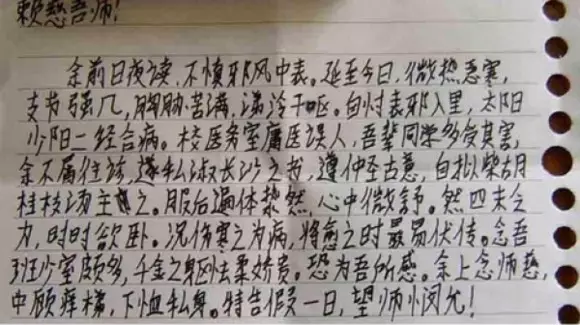 慈吾师!
余前日夜读,不慎邪风中表。延至今日,微热恶寒,
支节强几,胸胁苦满,涕泠干呕。自忖表邪入里,太阳
少阳二经合病。校医务室庸医误人,吾辈同学多受其害,
余不屑往诊,遂私淑长沙之书,遵仲圣古意,自拟柴胡
桂枝汤主之。服后遍体漐然,心中微舒。然四末乏
力,时时欲卧。况伤寒之为病,将愈之时最易伏传。念吾
班少室颇多,千金之躯怯柔娇贵。恐为吾所感。余上念师慈,
中顾痒梯,下恤私身。特告假一日,望师悯允!